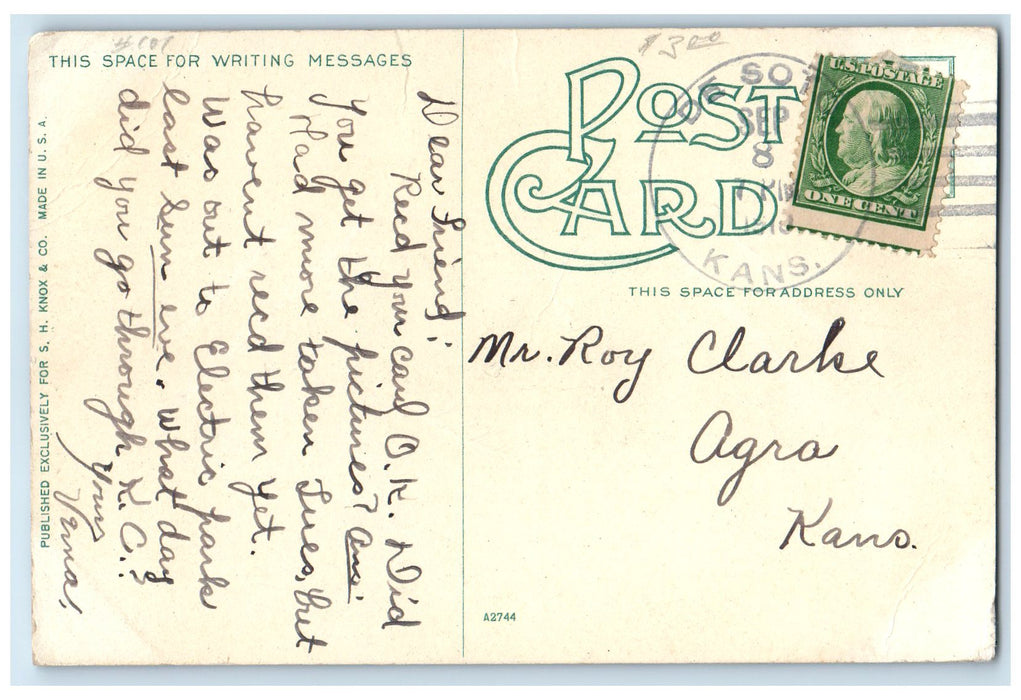 #101
THIS SPACE FOR WRITING MESSAGES
Dear Friend:
Recd your card O.K. Did
you get the pictures? Ans:
Had more taken Tues, but
havent recd them yet.
Was out to Electric park
last Sun eve. What day
did you go through K.C.?
Yours
Verna.
PUBLISHED EXCLUSIVELY FOR S. H. KNOX & CO. MADE IN U. S. A.
$3.00
POST
CARD
DE SOTO
SEP
8
KANS.
U.S. POSTAGE
ONE CENT
THIS SPACE FOR ADDRESS ONLY
Mr. Roy Clarke
Agra
Kans.
A2744